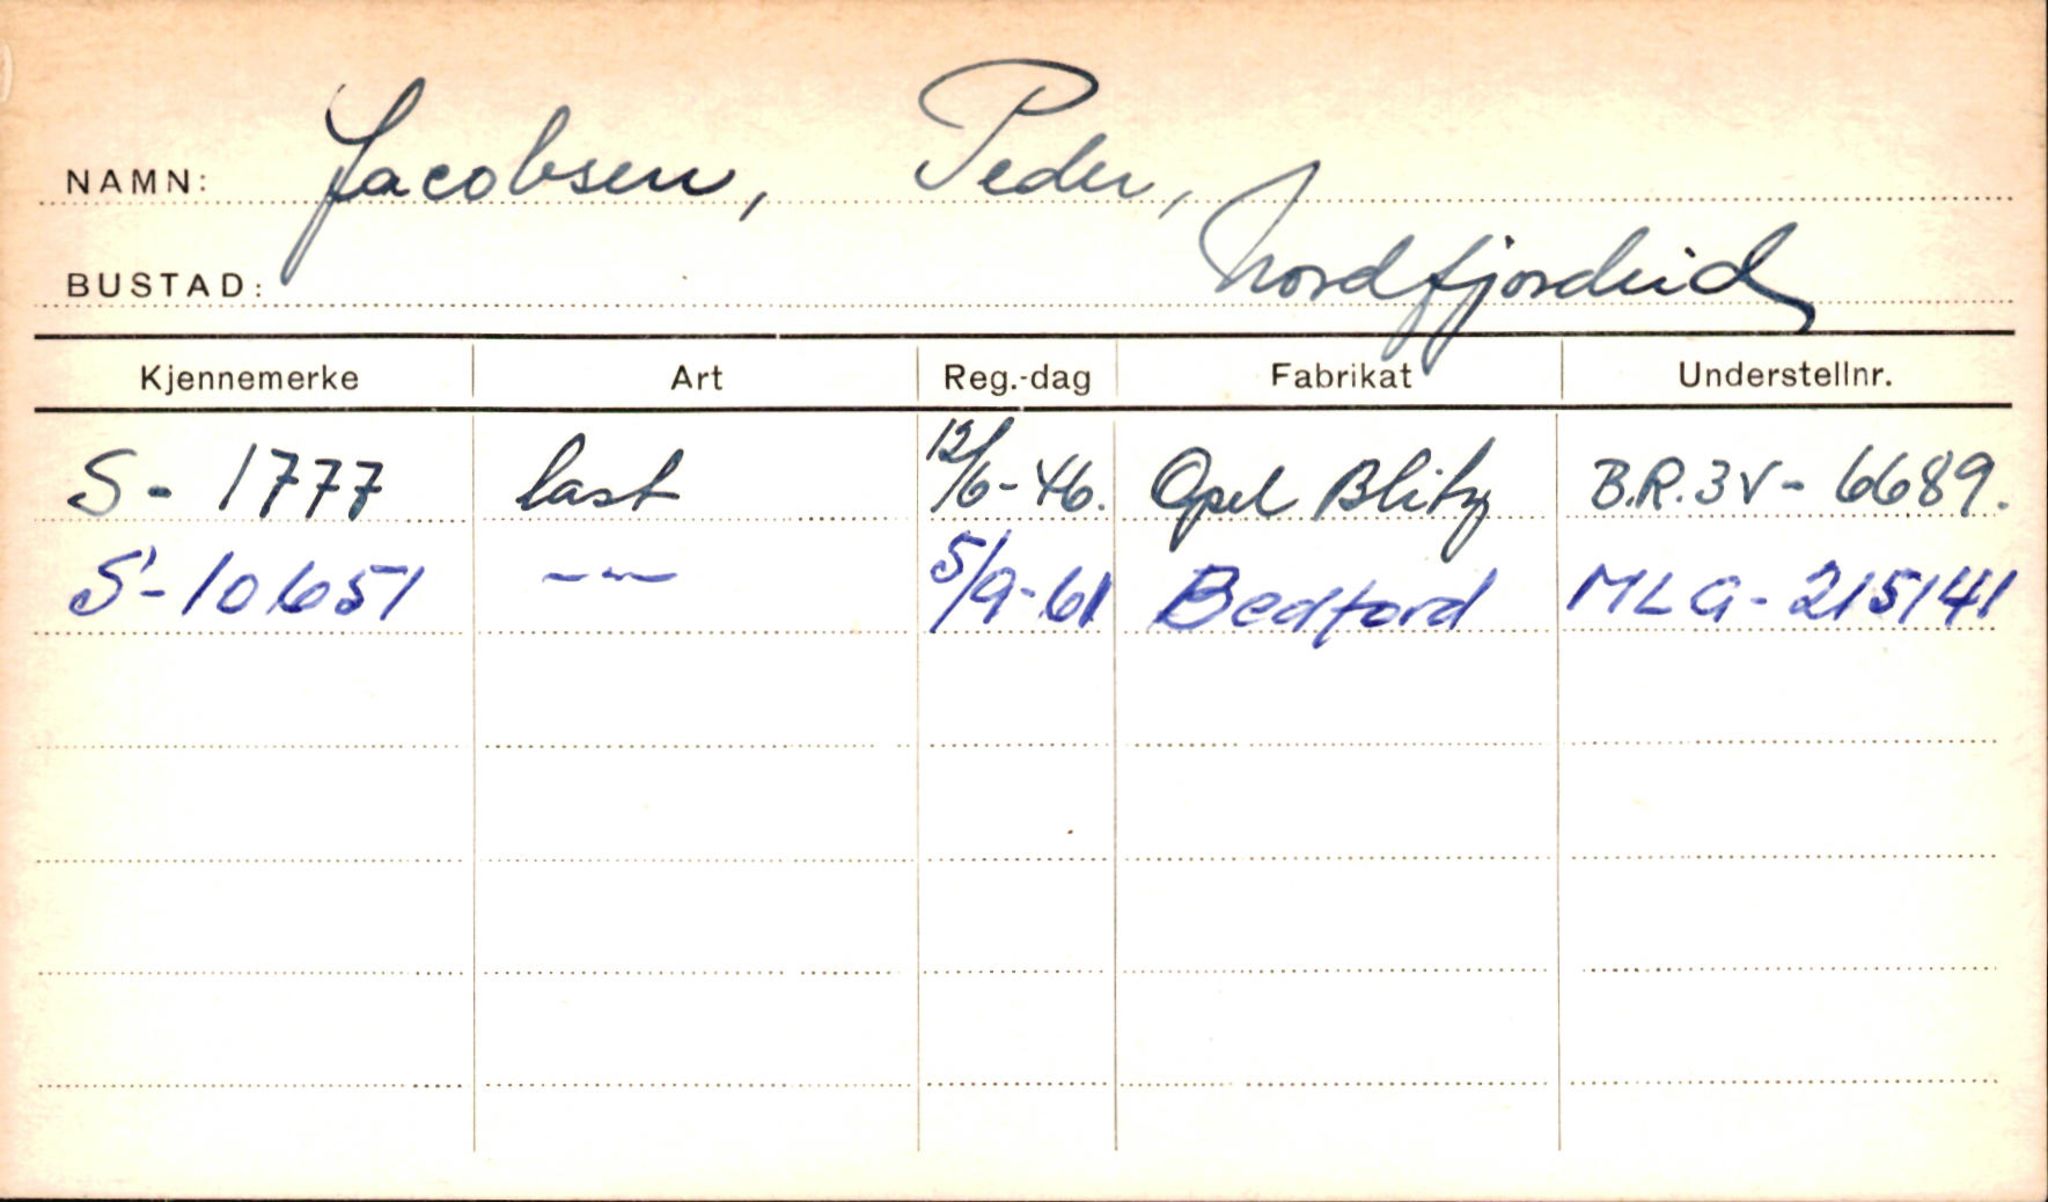 NAMN: Jacobsen, Peder,
BUSTAD: Nordfjordeid
Kjennemerke Art Reg.-dag Fabrikat Understellnr.
S - 1777 last 12/6-46. Opel Blitz B.R.3V - 6689.
S - 10651 —"— 5/9-61 Bedford MLG - 215141